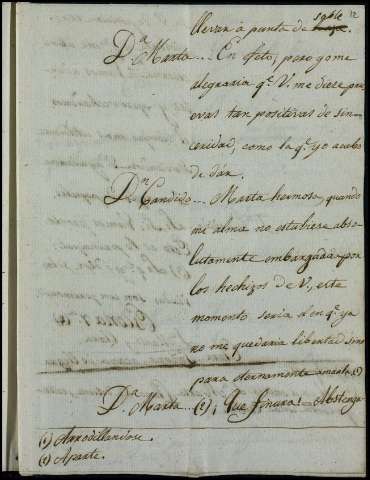 sable 12
llevar á punta de
Dª Marta... En feto; pero yo me
alegraria qᵉ V. me diese pru
evas tan positivas de sin-
ceridad, como la qᵉ yo acabo
de dar.
Dⁿ Candido... Marta hermosa, quando
mi alma no estubiera abso
lutamente embargada por
los hechizos de V., este
momento seria el en qᵉ ya
no me quedaria libertad sino
para eternamente amarla (1)
Dª Marta... (2) ¡Que finura! Abstenga
(1) Arrodillandose.
(2) Aparte.